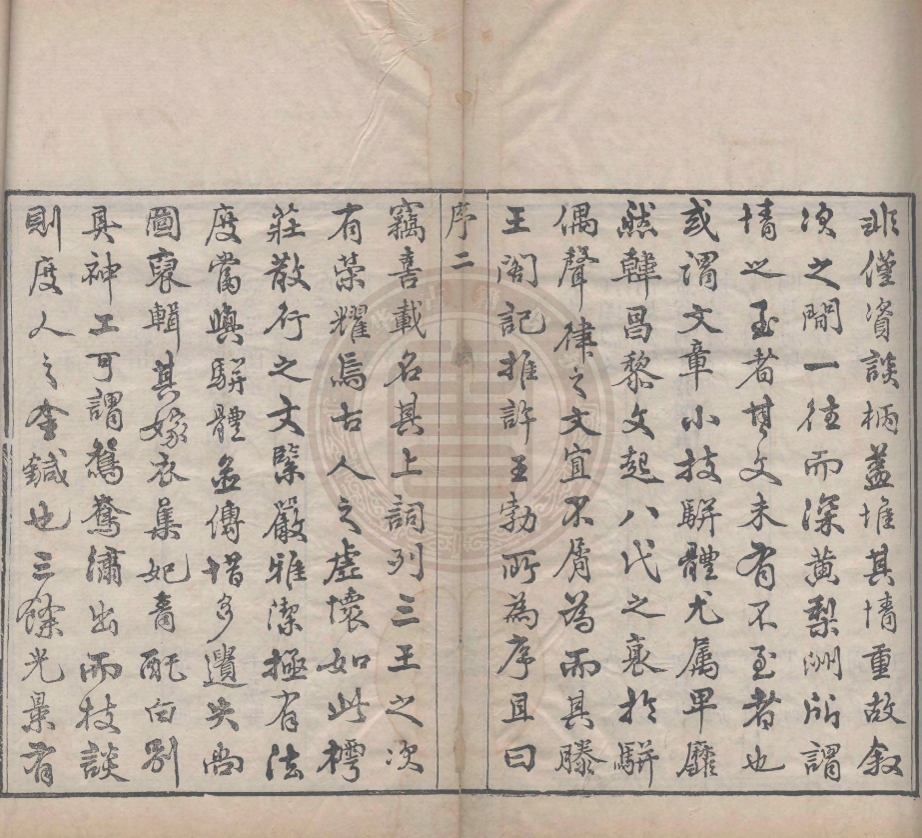 非僅資談柄蓋惟其情重故敘
次之間一往而深黃梨洲所謂
情之至者其文未有不至者也
或謂文章小技駢體尤屬卑靡
然韓昌黎文起八代之衰於駢
偶聲律之文宜不屑為而其滕
王閣記推許王勃所為序且曰
序二
竊喜載名其上詞列三王之次
有榮耀焉古人之虛懷如此樗
莊散行之文緊嚴雅潔極有法
度當與駢體並傳惜多遺失尚
圖裒輯其嫁衣集妃青配白別
具神工可謂鴛鴦繡出而枝談
則度人之金鍼也三餘光景有